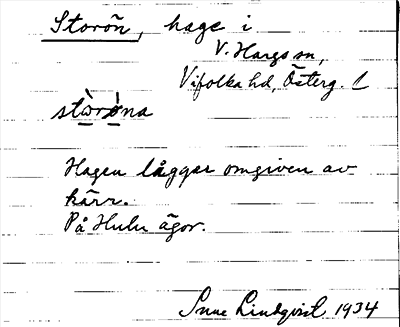 Storön, hage i
V. Hargs sn,
Vifolka hd, Österg. l
stòrǿna
Hagen lågger omgiven av
kärr.
På Hulu ägor.
Sune Lindqvist 1934